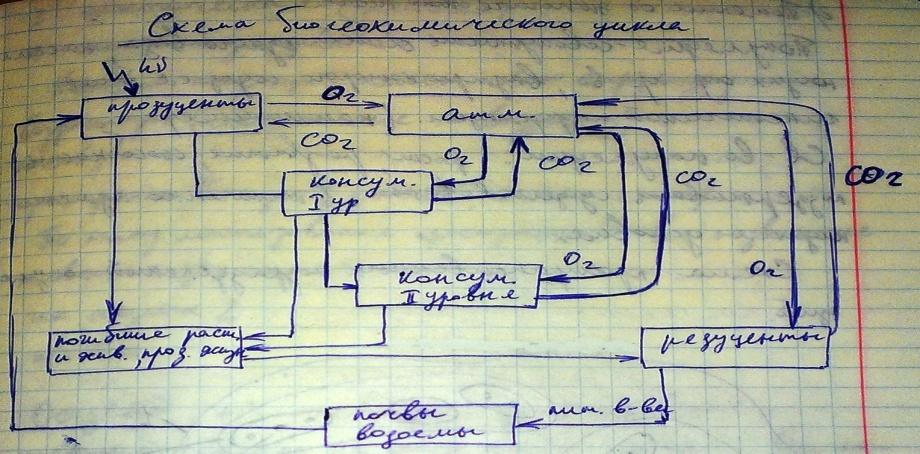 Схема биогеохимического цикла
hν
продуценты
O2
CO2
атм.
O2
CO2
CO2
CO2
консум.
I ур
O2
O2
консум.
II уровня
погибшие раст.
и жив., прод. жизн
редуценты
мин. в-ва
почвы
водоемы